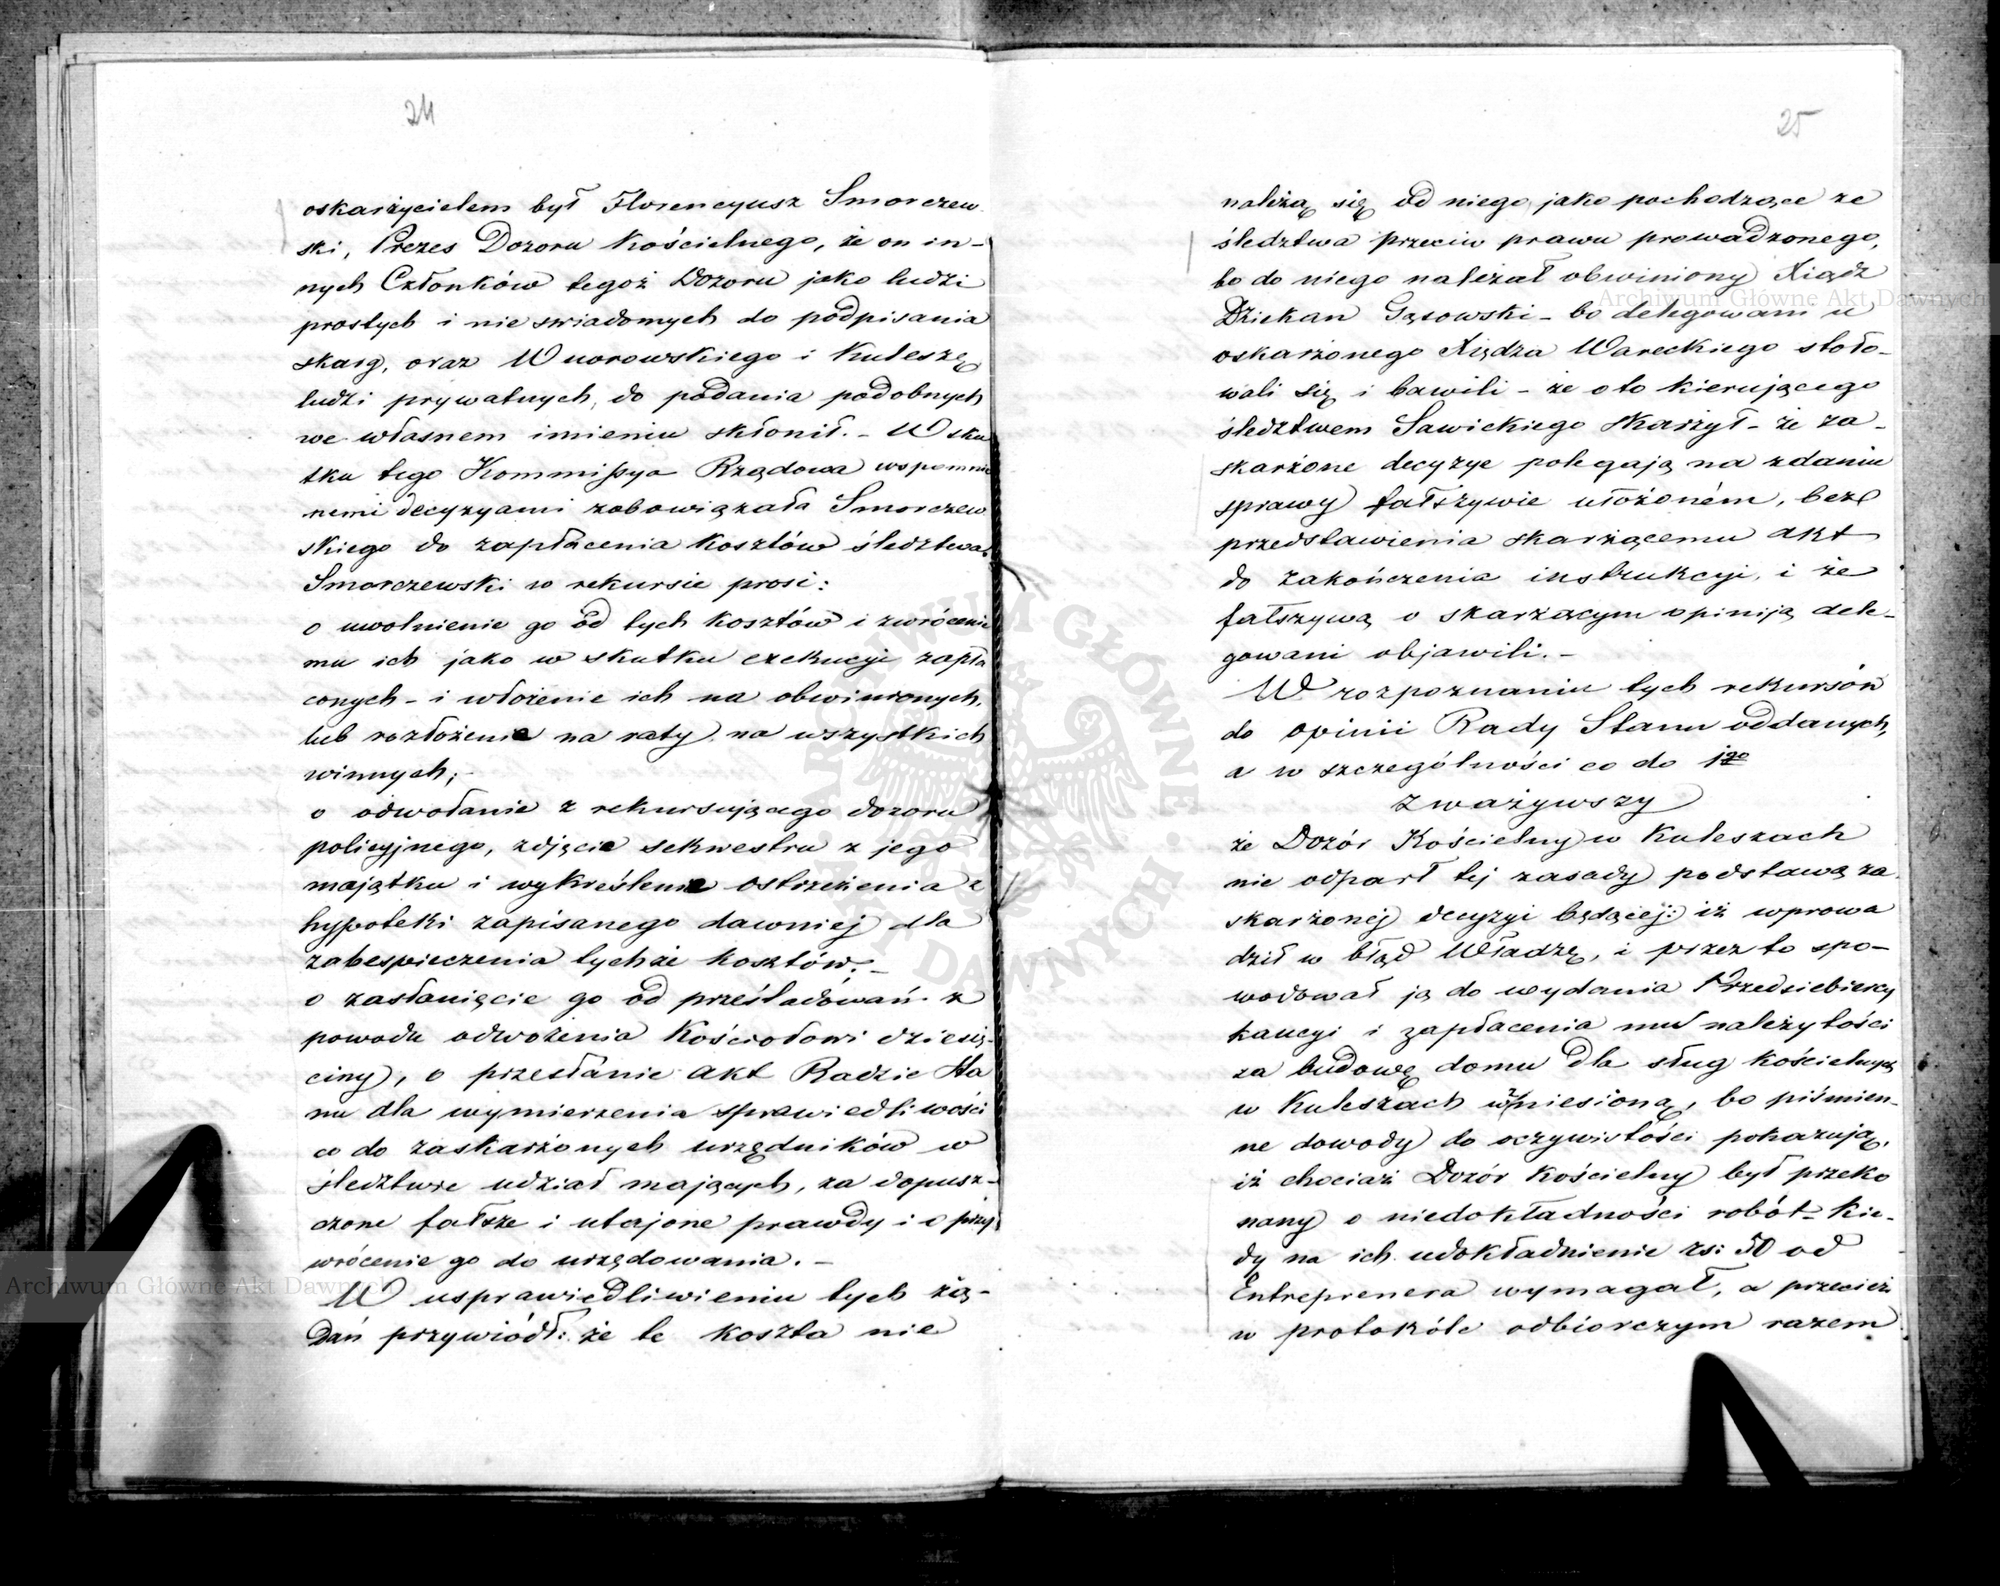 24
oskarżycielem był Florencyusz Smorczew
ski, Prezes Dozoru Kościelnego, że on in-
nych Członków tegoż Dozoru jako ludzi
prostych i nieświadomych do podpisania
skarg, oraz Wnorowskiego i Kuleszę
ludzi prywatnych, do podania podobnych
we własnem imieniu skłonił. - W sku
tku tego Kommissya Rządowa wspomnio
nemi decyzyami zobowiązała Smorczew
skiego do zapłacenia kosztów śledztwa.
Smorczewski w rekursie prosi:
o uwolnienie go od tych kosztów i zwrócenie
mu ich jako w skutku exekucyi zapła
conych - i włożenie ich na obwinionych,
lub rozłożenie na raty na wszystkich
winnych; -
o odwołanie z rekursującego dozoru
policyjnego, zdjęcie sekwestru z jego
majątku i wykreślenie ostrzeżenia z
hypoteki zapisanego dawniej dla
zabespieczenia tychże kosztów. -
o zasłonięcie go od prześladowań z
powodu odwożenia Kościołowi dziesię-
ciny, o przesłanie akt Radzie Sta
nu dla wymierzenia sprawiedliwości
co do zaskarżonych urzędników w
śledztwie udział mających, za dopusz-
czone fałsze i utajone prawdy i o przy
wrócenie go do urzędowania. -
W usprawiedliwieniu tych żą-
dań przywiódł: że te koszta nie
25
należą się od niego, jako pochodzące ze
śledztwa przeciw prawu prowadzonego,
bo do niego należał obwiniony Xiądz
Dziekan Gąsowski - bo delegowani u
oskarżonego Xiędza Wareckiego stoło-
wali się i bawili - że o to kierującego
śledztwem Sawickiego skarżył - że za-
skarżone decyzye polegają na zdaniu
sprawy fałszywie ułożoném, bez
przedstawienia skarżącemu akt
do zakończenia instrukcyi, i że
fałszywą o skarżącym opiniją dele-
gowani objawili. -
W rozpoznaniu tych rekursów
do opinii Rady Stanu oddanych,
a w szczególności co do 1go
Zważywszy
że Dozór Kościelny w Kuleszach
nie odparł tej zasady podstawą za
skarżonéj decyzyi będącej: iż wprowa
dził w błąd Władzę, i przez to spo-
wodował ją do wydania Przedsiebiercy
kaucyi i zapłacenia mu należytości
za budowę domu dla sług kościelnych
w Kuleszach wzniesioną, bo piśmien-
ne dowody do oczywistości pokazują,
iż chociaż Dozór Kościelny był przeko
nany o niedokładności robót - kie-
dy na ich udokładnienie rs: 50 od
Entreprenera wymagał, a przecież
w protokóle odbiorczym razem
ARCHIWUM GŁÓWNE AKT DAWNYCH
Archiwum Główne Akt Dawnych
Archiwum Główne Akt Dawnych